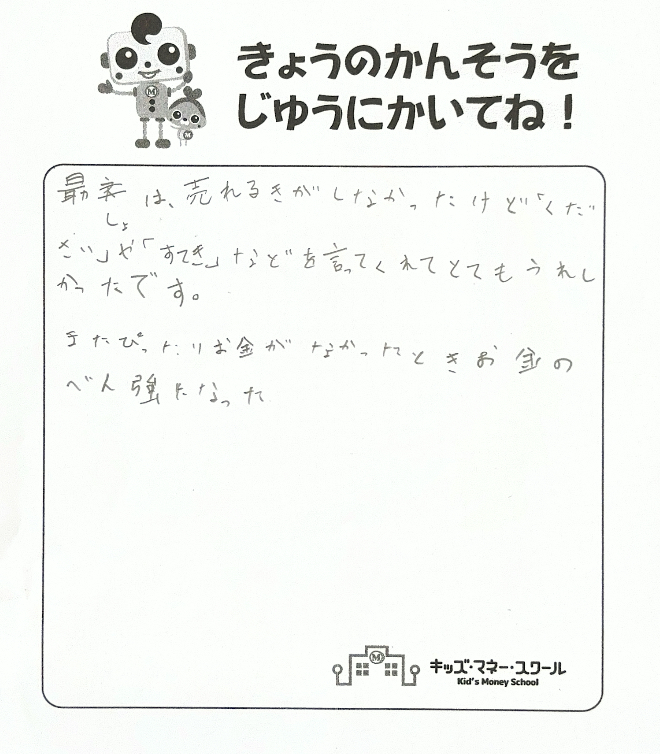 きょうのかんそうを
じゆうにかいてね！
は、売れるきがしなかったけど「くだ
しょ
さい」や「すてき」などを言ってくれてとてもうれし
かったです。
またぴったりお金がなかったときお金の
べん強になった
M
キッズ・マネー・スクール
Kid's Money School